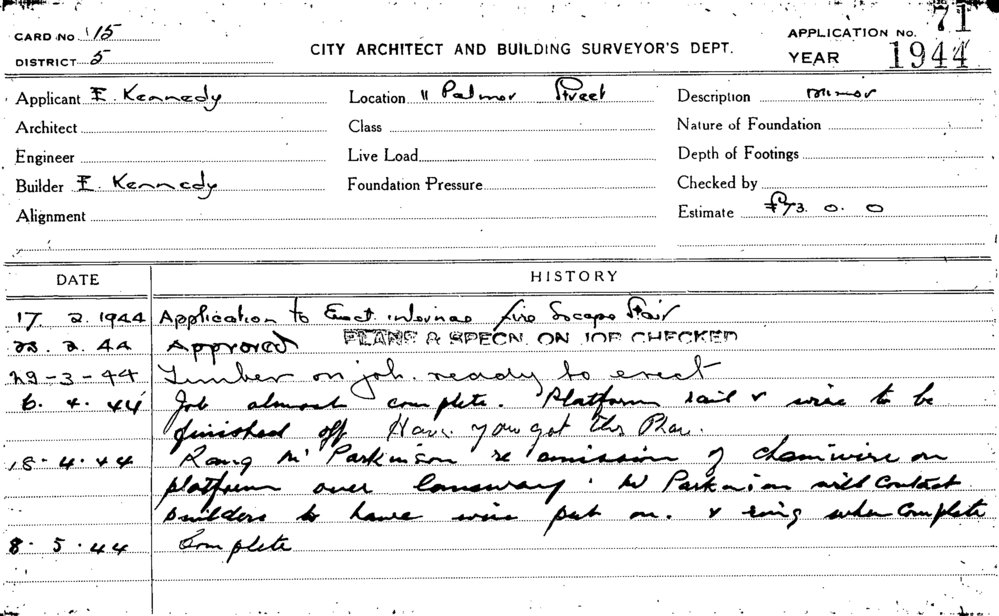 CARD NO 15
DISTRICT 5
CITY ARCHITECT AND BUILDING SURVEYOR'S DEPT.
APPLICATION NO. 71
YEAR 1944
Applicant E. Kennedy
Location 11 Palmer Street
Description minor
Architect
Class
Nature of Foundation
Engineer
Live Load
Depth of Footings
Builder E. Kennedy
Foundation Pressure
Checked by
Alignment
Estimate £73. 0. 0
DATE HISTORY
17 2. 1944 Application to Erect internal fire Escape Stair
22. 2. 44 Approved PLANS & SPECN. ON JOB CHECKED
29-3-44 Timber on job. ready to erect
6. 4. 44 Job almost complete. Platform rail & wire to be
finished off Have you got this Plan.
18. 4. 44 Rang Mr Parkinson re omission of chainwire on
platform over laneway. Mr Parkinson will contact
builders to have wire put on. & ring when complete
8. 5. 44 Complete